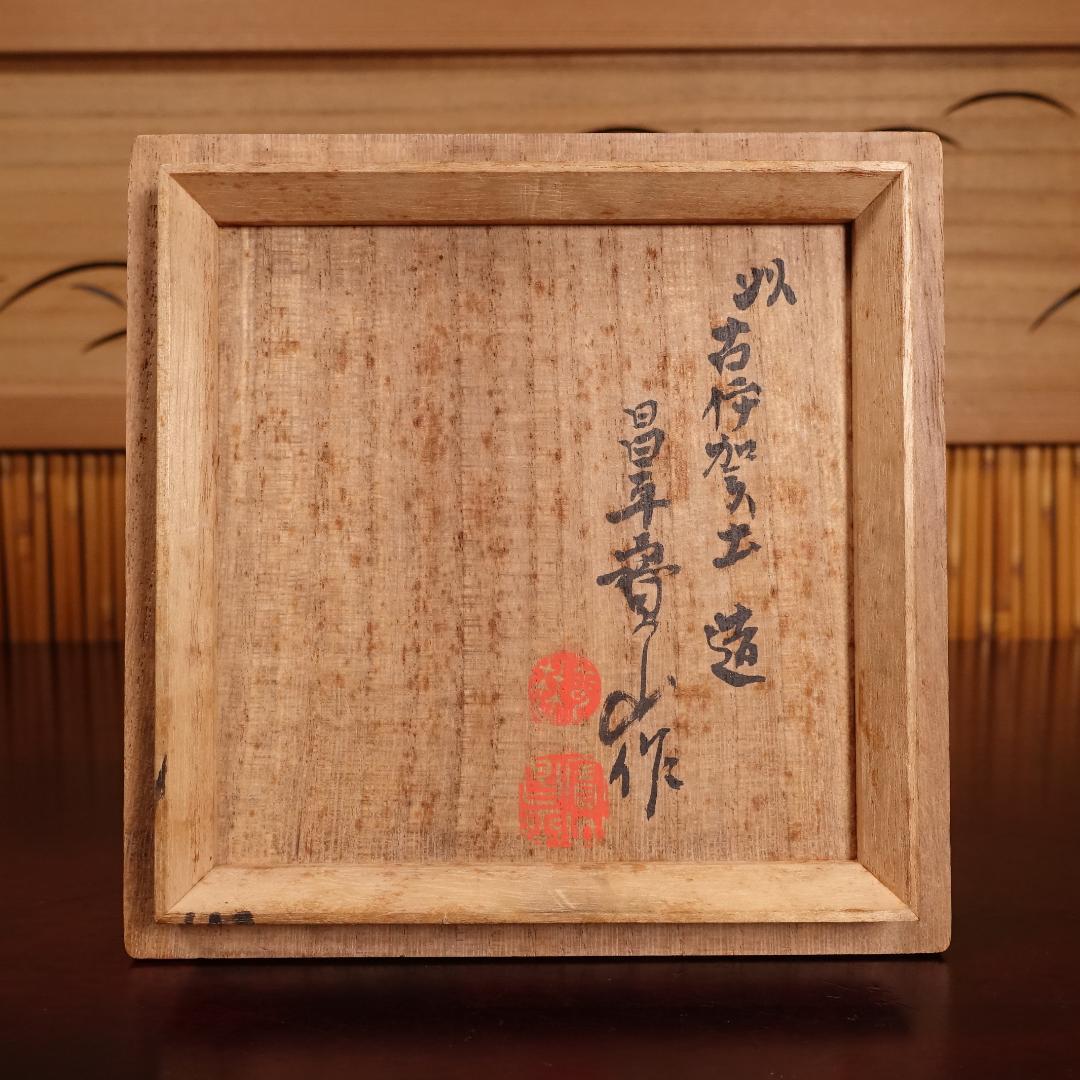 以古伊賀土 造
昌平寳山作